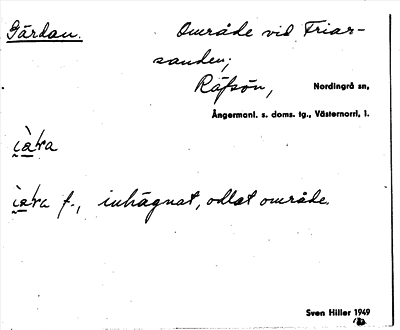 Gärdan. Område vid Friar-
sanden;
Räfsön, Nordingrå sn,
Ångermanl. s. doms. tg., Västernorrl. l.
i̯a`ʼra
i̯a`ʼra f., inhägnat, odlat område.
Sven Hiller 1949